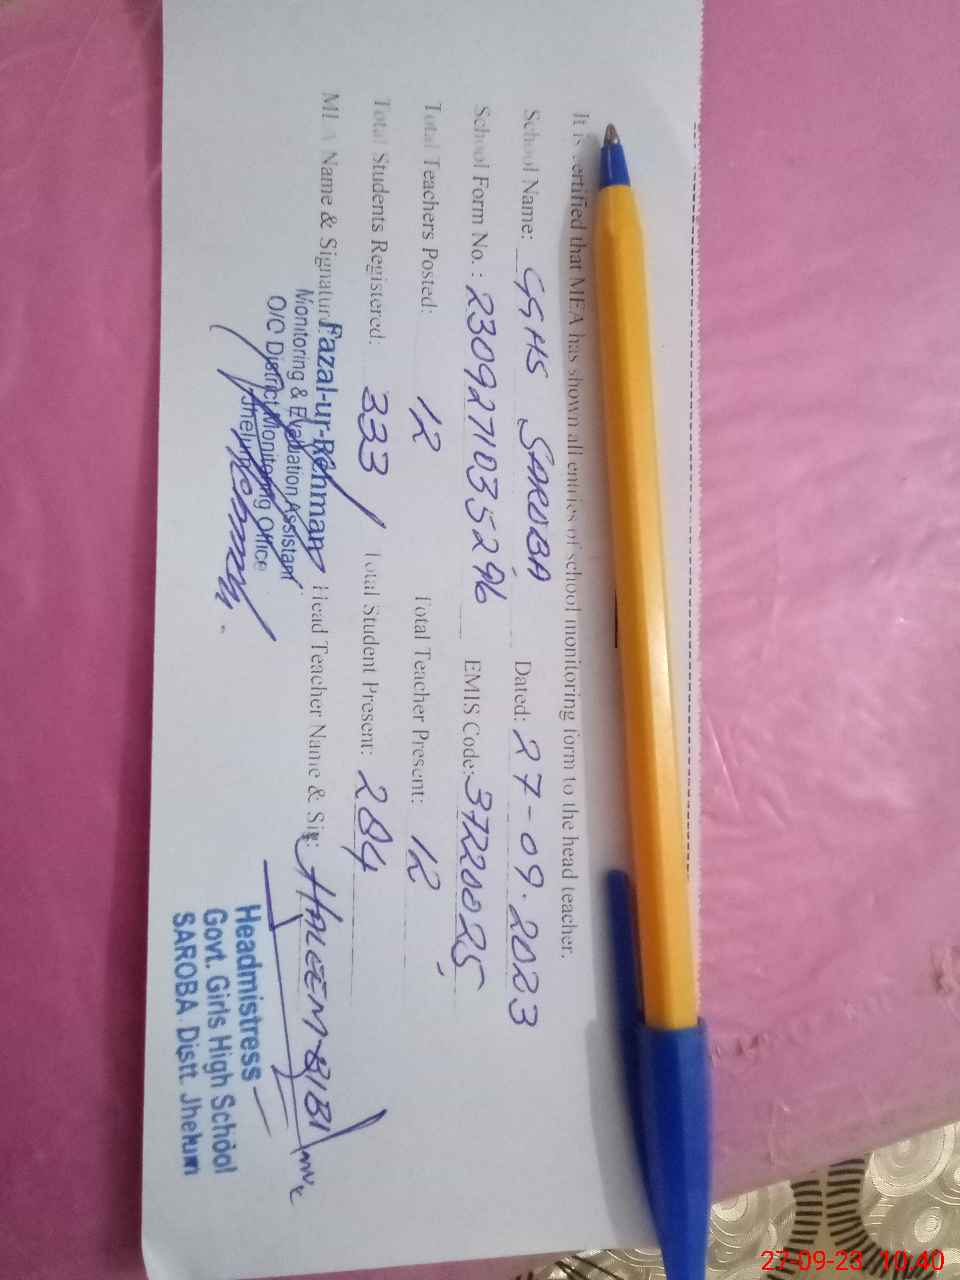 It is certified that MEA has shown all entries of school monitoring form to the head teacher.
School Name: GGHS SAROBA Dated: 27-09-2023
School Form No.: 2309271035296 EMIS Code: 37220025
Total Teachers Posted: 12 Total Teacher Present: 12
Total Students Registered: 333 Total Student Present: 284
MEA Name & Signature: Fazal-ur-Rehman Head Teacher Name & Sig: HALEEM BIBI
Monitoring & Evaluation Assistant
O/O District Monitoring Office
Jhelum
Headmistress
Govt. Girls High School
SAROBA Distt. Jhelum
27-09-23 10:40